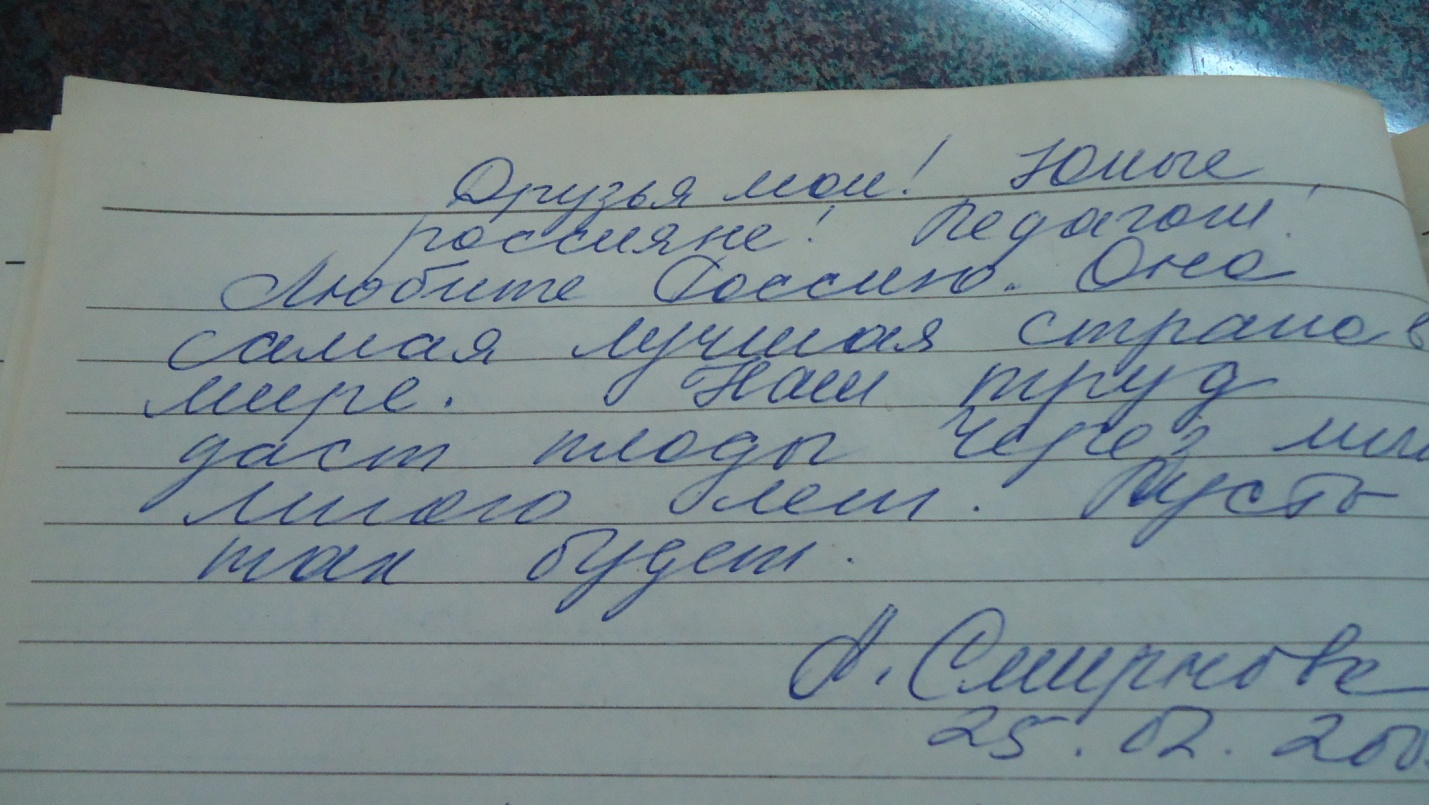 Друзья мои! Юные
россияне! Педагоги!
Любите Россию. Она
самая лучшая страна в
мире. Наш труд
даст плоды через
много лет. Пусть
так будет.
А. Смирнова
25.02.